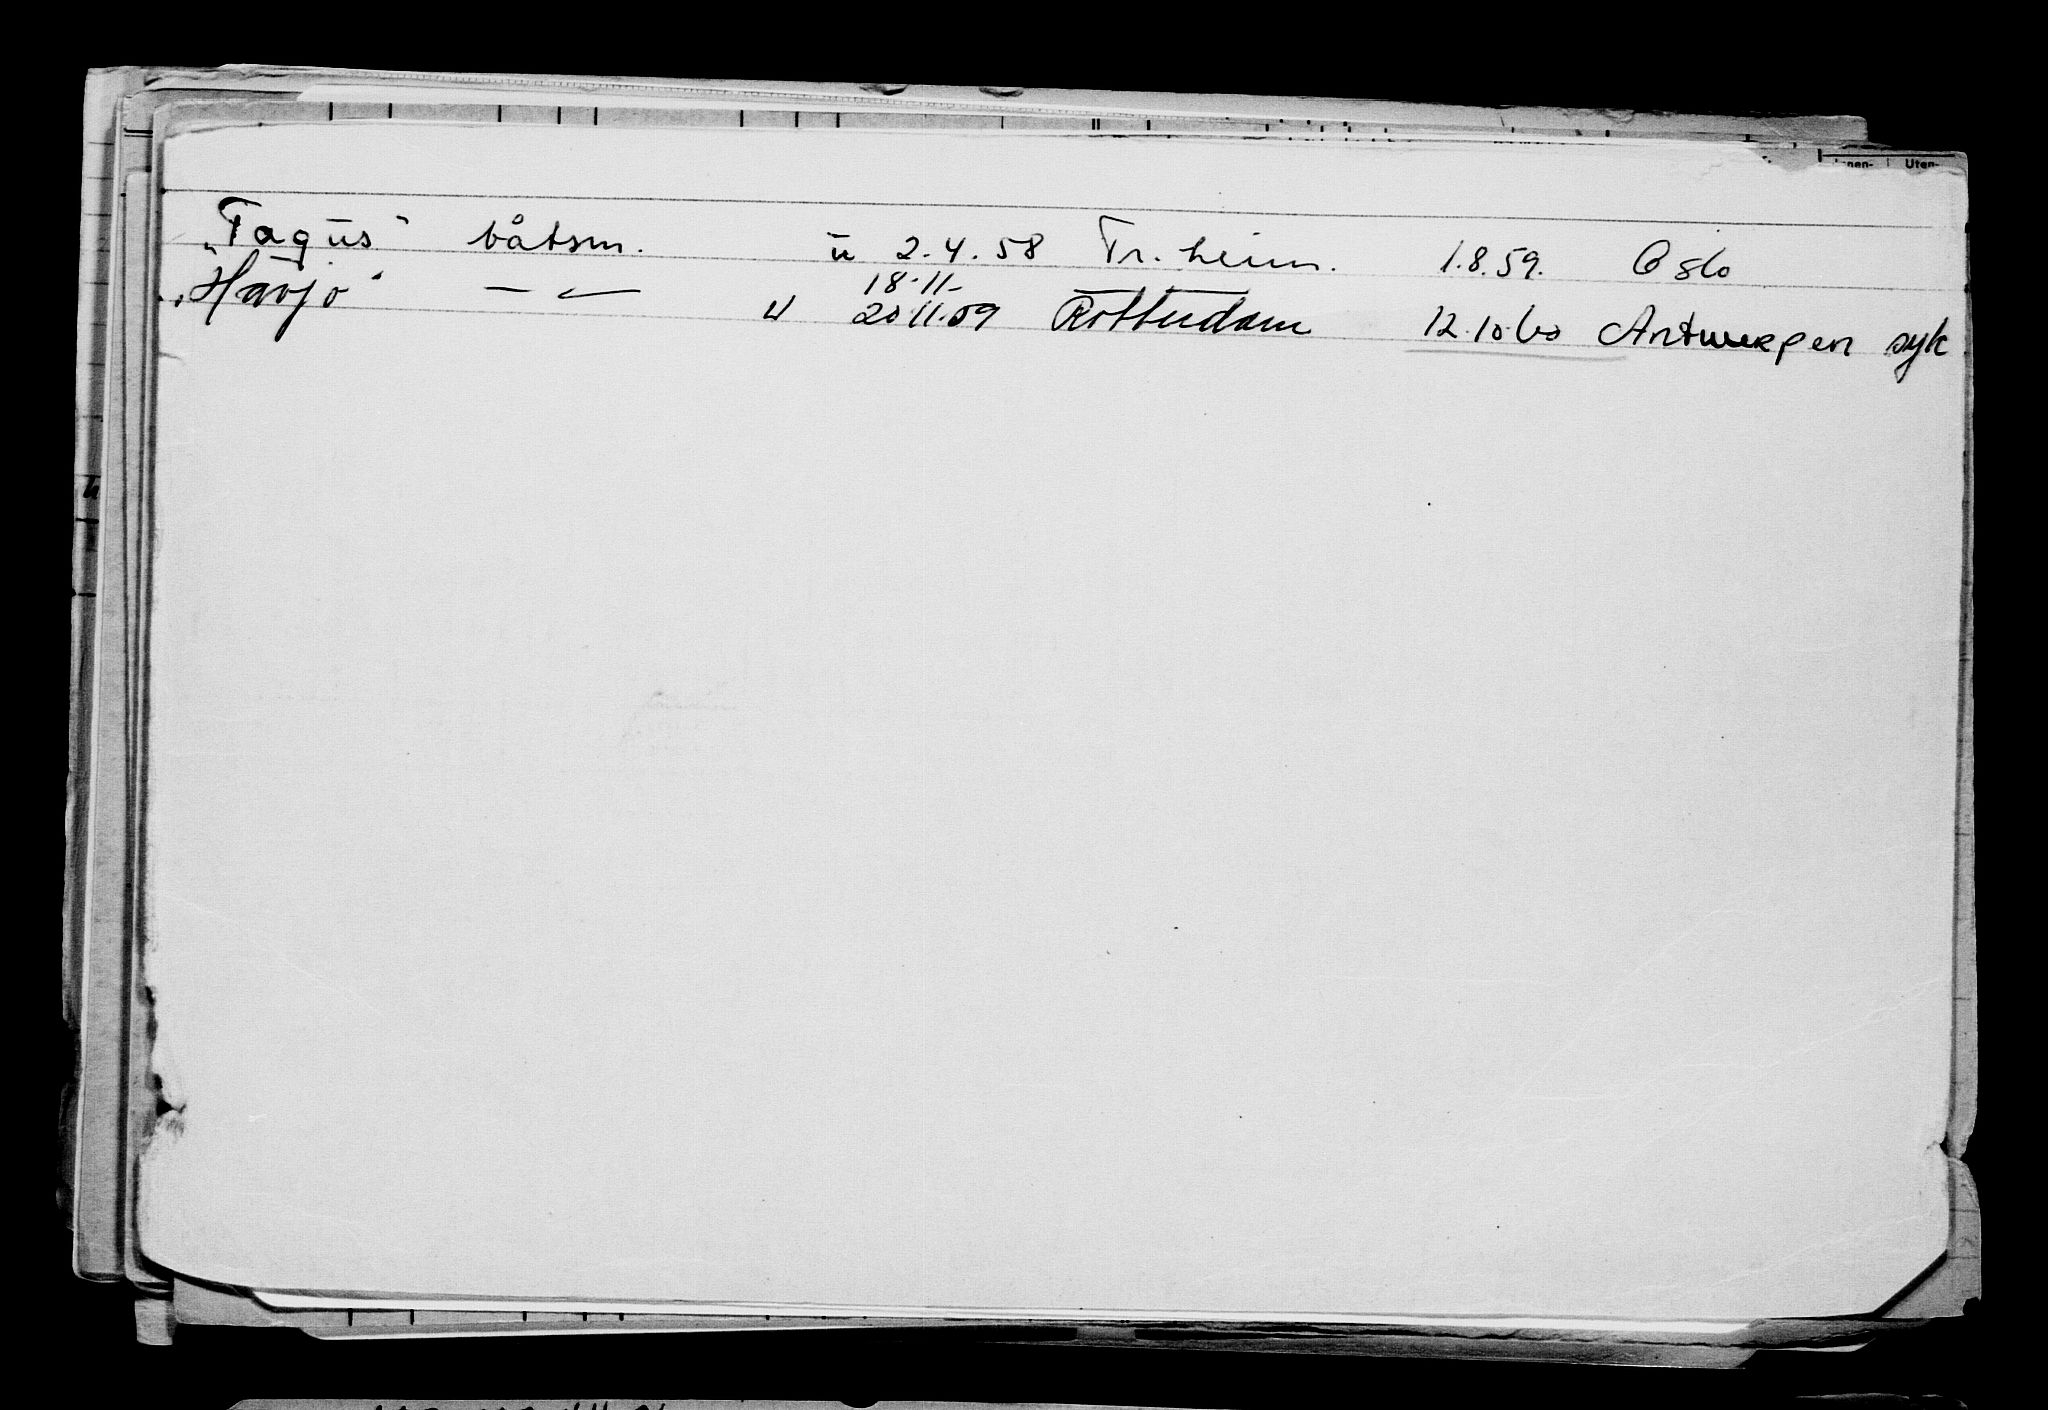 „Tagus" båtsm. u 2.4.58 Tr.heim. 1.8.59. Oslo
18.11-
„Havjo" — — u 20.11.59 Rotterdam 12.10.60 Antwerpen syk